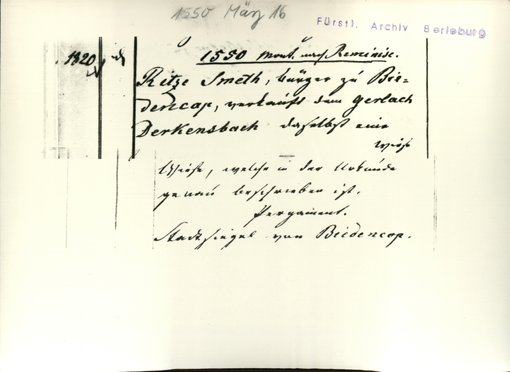 1550 März 16
Fürstl. Archiv Berleburg
1820
1550 Mont. nach Reminisc.
Ritze Smeth, bürger zu Bie-
dencap, verkauft dem Gerlach
Derkensbach daselbst eine
Wiese
Wiese, welche in der Urkunde
genau beschrieben ist.
Pergament.
Stadtsiegel von Biedencap.